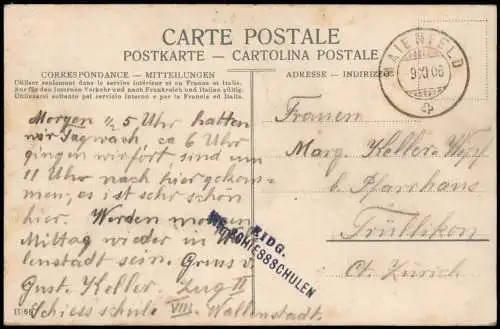 CARTE POSTALE
POSTKARTE - CARTOLINA POSTALE
CORRESPONDANCE - MITTEILUNGEN
ADRESSE - INDIRIZZO
Utiliser seulement dans le service intérieur et en France et Italie.
Nur für den inneren Verkehr und nach Frankreich und Italien gültig.
Utilizzarsi soltanto pel servizio interno e per la Francia ed Italia.
MAIENFELD
9 XI 06
Morgen ½ 5 Uhr hatten
wir Tagwach ca 6 Uhr
gingen wir fort sind um
11 Uhr nach hier gekom-
men, es ist sehr schön
hier. Werden morgen
Mittag wieder in Wal-
lenstadt sein. Gruss v.
Gust. Keller. Zug II
Schiessschule VIII. Wallenstadt
Frauen
Marg. Keller-Wipf
b. Pfarrhaus
Trüllikon
Ct. Zürich
EIDG.
SCHIESSSCHULEN